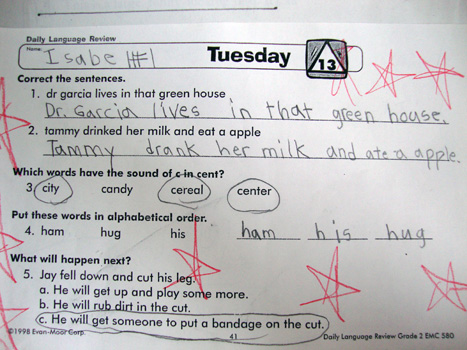 Daily Language Review
Name: Isabel #1
Tuesday
13
Correct the sentences.
1. dr garcia lives in that green house
Dr. Garcia lives in that green house.
2. tammy drinked her milk and eat a apple
Tammy drank her milk and ate a apple.
Which words have the sound of c in cent?
3. city candy cereal center
Put these words in alphabetical order.
4. ham hug his ham his hug
What will happen next?
5. Jay fell down and cut his leg.
a. He will get up and play some more.
b. He will rub dirt in the cut.
c. He will get someone to put a bandage on the cut.
©1998 Evan-Moor Corp. 41 Daily Language Review Grade 2 EMC 580